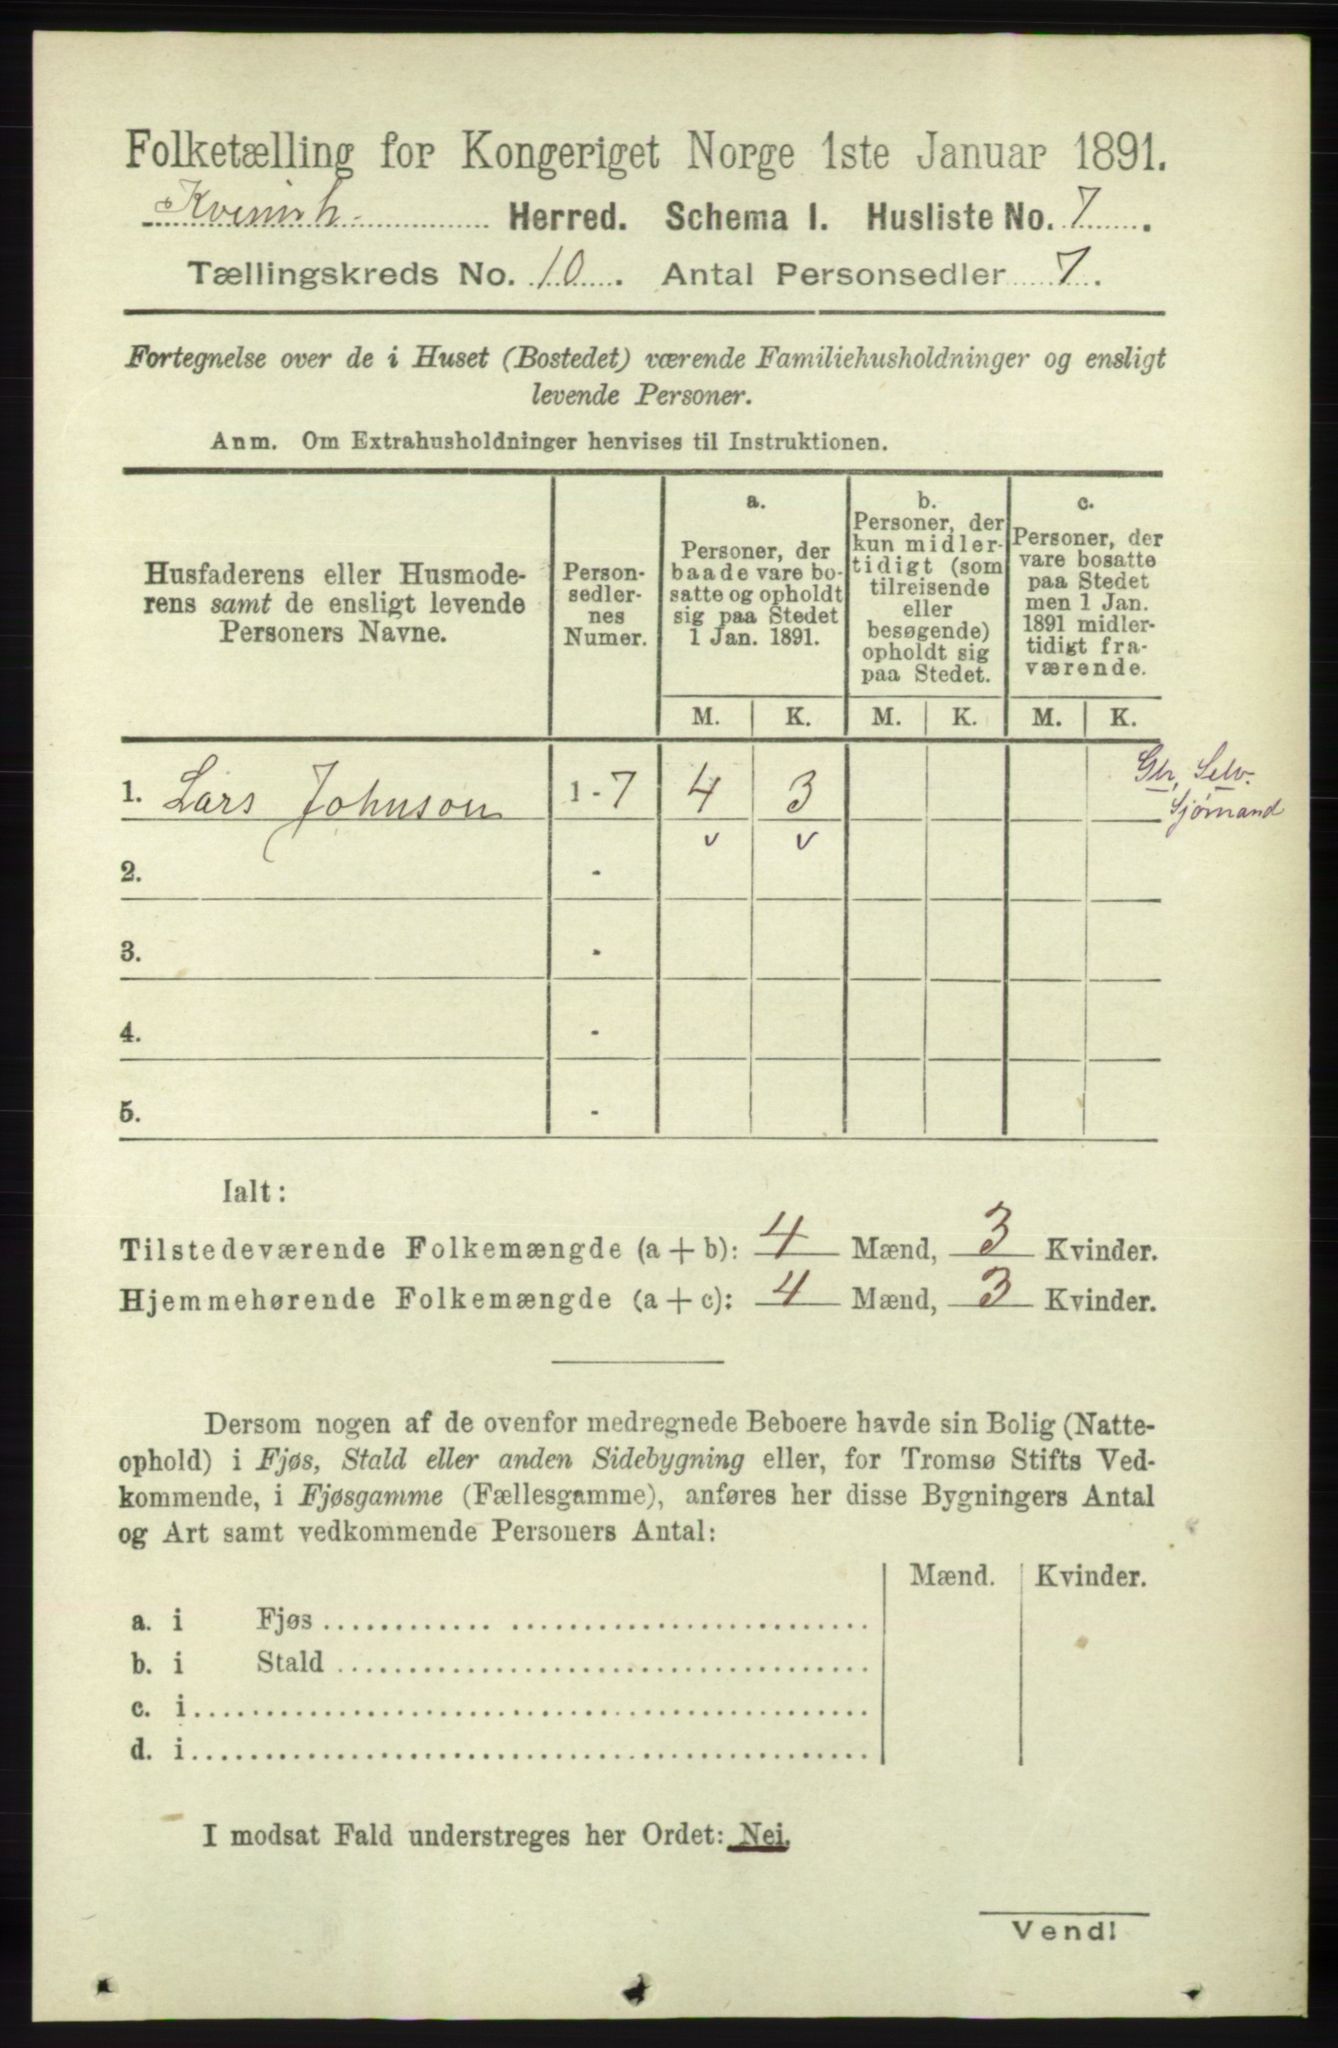 Folketælling for Kongeriget Norge 1ste Januar 1891.
Kvinnh. Herred. Schema I. Husliste No. 7.
Tællingskreds No. 10. Antal Personsedler 7.
Fortegnelse over de i Huset (Bostedet) værende Familiehusholdninger og ensligt
levende Personer.
Anm. Om Extrahusholdninger henvises til Instruktionen.
Husfaderens eller Husmode-
rens samt de ensligt levende
Personers Navne.
Person-
sedler-
nes
Numer.
a.
Personer, der
baade vare bo-
satte og opholdt
sig paa Stedet
1 Jan. 1891.
b.
Personer, der
kun midler-
tidigt (som
tilreisende
eller
besøgende)
opholdt sig
paa Stedet.
c.
Personer, der
vare bosatte
paa Stedet
men 1 Jan.
1891 midler-
tidigt fra-
værende.
M. K. M. K. M. K.
1. Lars Johnson 1 - 7 4 3
Gbr, Selv.
Sjømand
v v
2. -
3. -
4. -
5. -
Ialt:
Tilstedeværende Folkemængde (a + b): 4 Mænd, 3 Kvinder.
Hjemmehørende Folkemængde (a + c): 4 Mænd, 3 Kvinder.
Dersom nogen af de ovenfor medregnede Beboere havde sin Bolig (Natte-
ophold) i Fjøs, Stald eller anden Sidebygning eller, for Tromsø Stifts Ved-
kommende, i Fjøsgamme (Fællesgamme), anføres her disse Bygningers Antal
og Art samt vedkommende Personers Antal:
Mænd. Kvinder.
a. i Fjøs
b. i Stald
c. i
d. i
I modsat Fald understreges her Ordet: Nei.
Vend!